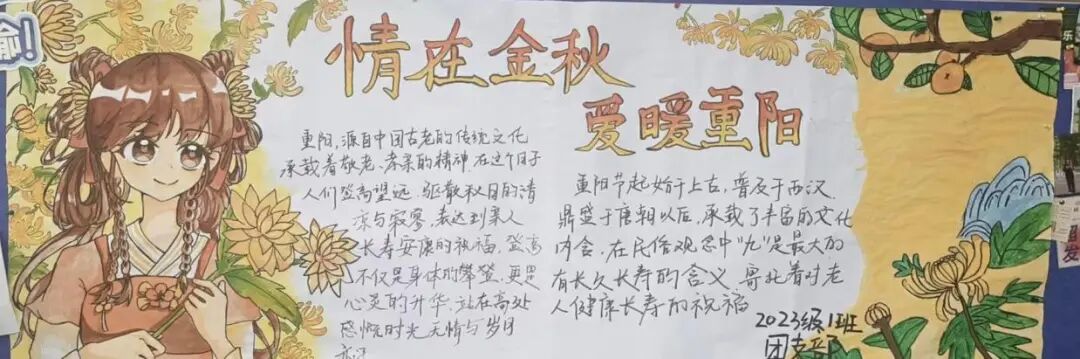 情在金秋
爱暖重阳
重阳,源自中国古老的传统文化
承载着敬老、孝亲的精神.在这个日子
人们登高望远,驱散秋日的清
凉与寂寥,表达到亲人
长寿安康的祝福,登高
不仅是身体的攀登,更是
心灵的升华,站在高处
感慨时光无情与岁月
重阳节起始于上古,普及于西汉,
鼎盛于唐朝以后,承载了丰富的文化
内含,在民俗观念中"九"是最大的
有长久长寿的含义,寄托着对老
人健康长寿的祝福
2023级1班
团支部